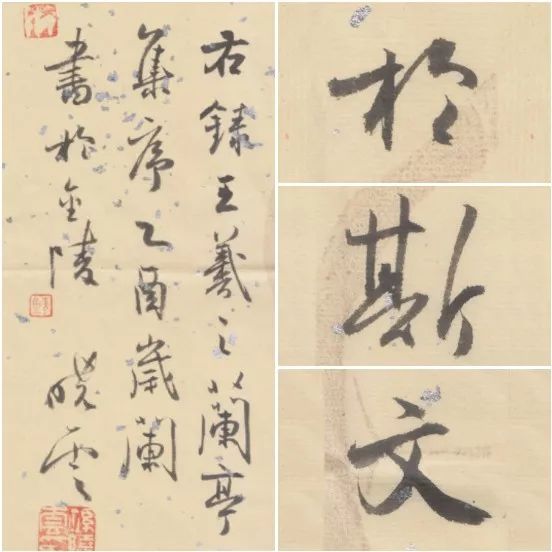 右錄王羲之蘭亭
集序乙酉歲蘭
書於金陵 曉雲
於
斯
文